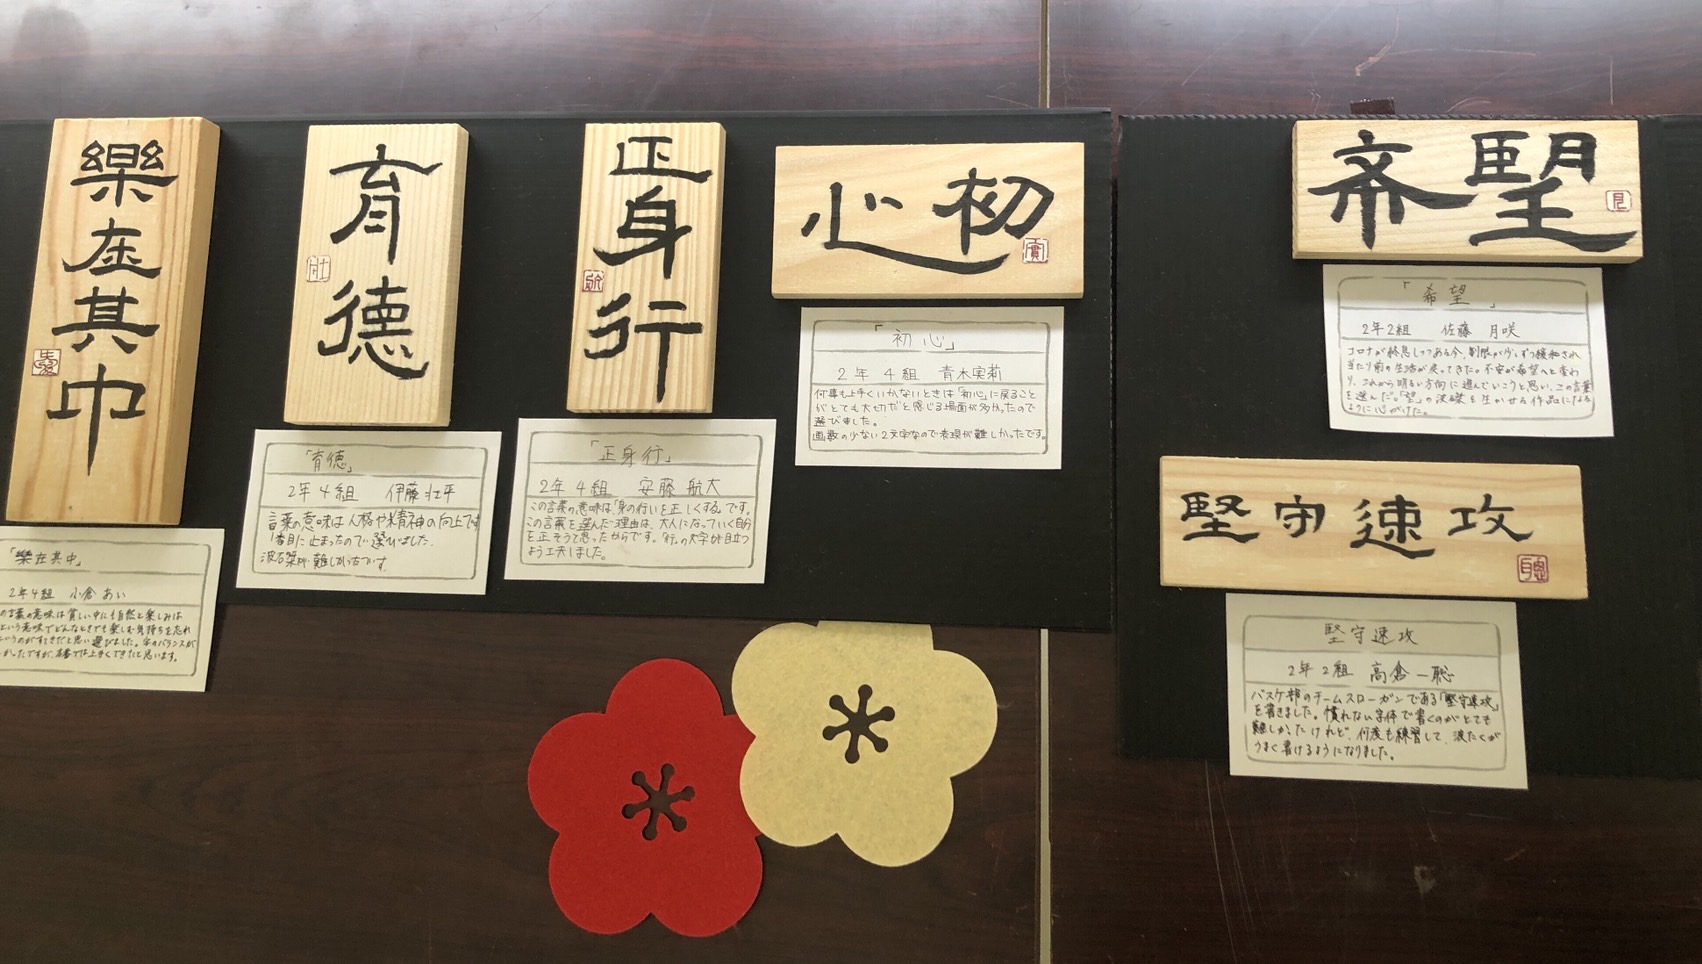 樂在其中
「樂在其中」
2年4組 小倉 あい
の言葉の意味は貧しい中にも自然と楽しみは
という意味でどんなときでも楽しむ気持ちを忘れ
というのがすてきだと思い選びました。字のバランスが
かったですが、本番では上手くできたと思います。
育徳
「育徳」
2年4組 伊藤 壮平
言葉の意味は人格や精神の向上です
1番目に止まったので選びました。
波磔が難しかったです。
正身行
「正身行」
2年4組 安藤 航大
この言葉の意味は「身の行いを正しくする」です。
この言葉を選んだ理由は、大人になっていく自分
を正そうと思ったからです。「行」の文字が目立つ
よう工夫しました。
初心
「初心」
2年4組 青木実莉
何事も上手くいかないときは「初心」に戻ること
がとても大切だと感じる場面が多かったので
選びました。
画数の少ない2文字なので表現が難しかったです。
希望
「希望」
2年2組 佐藤 月咲
コロナが終息しつつある今、制限が少しずつ緩和され
当たり前の生活が戻ってきた。不安が希望へと変わ
り、これから明るい方向に進んでいこうと思い、この言葉
を選んだ。「望」の波磔を生かせる作品になる
ように心がけた。
堅守速攻
堅守速攻
2年2組 高倉 一聡
バスケ部のチームスローガンである「堅守速攻」
を書きました。慣れない字体で書くのがとても
難しかったけれど、何度も練習して、波たくが
うまく書けるようになりました。